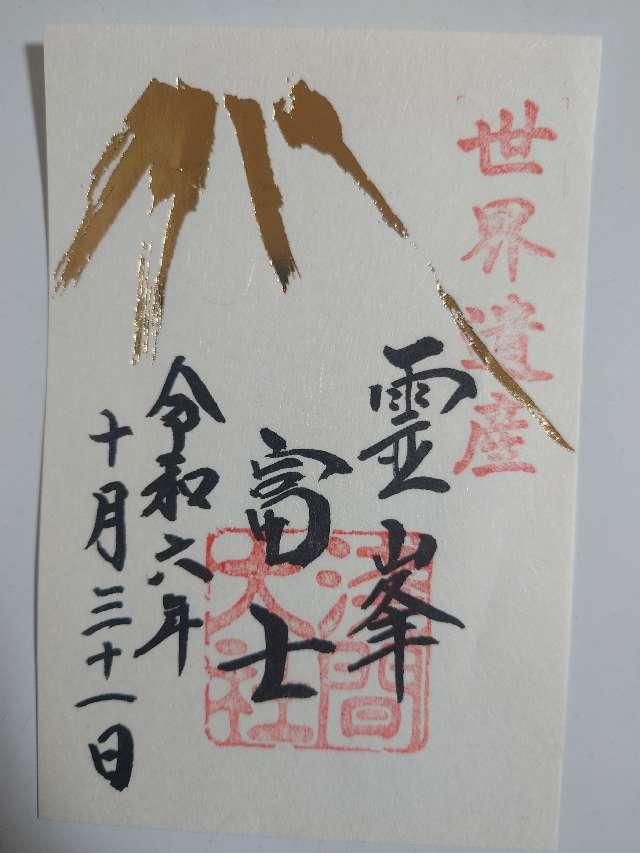 世界遺産
霊峯
富士
浅間
大社
令和六年
十月三十一日